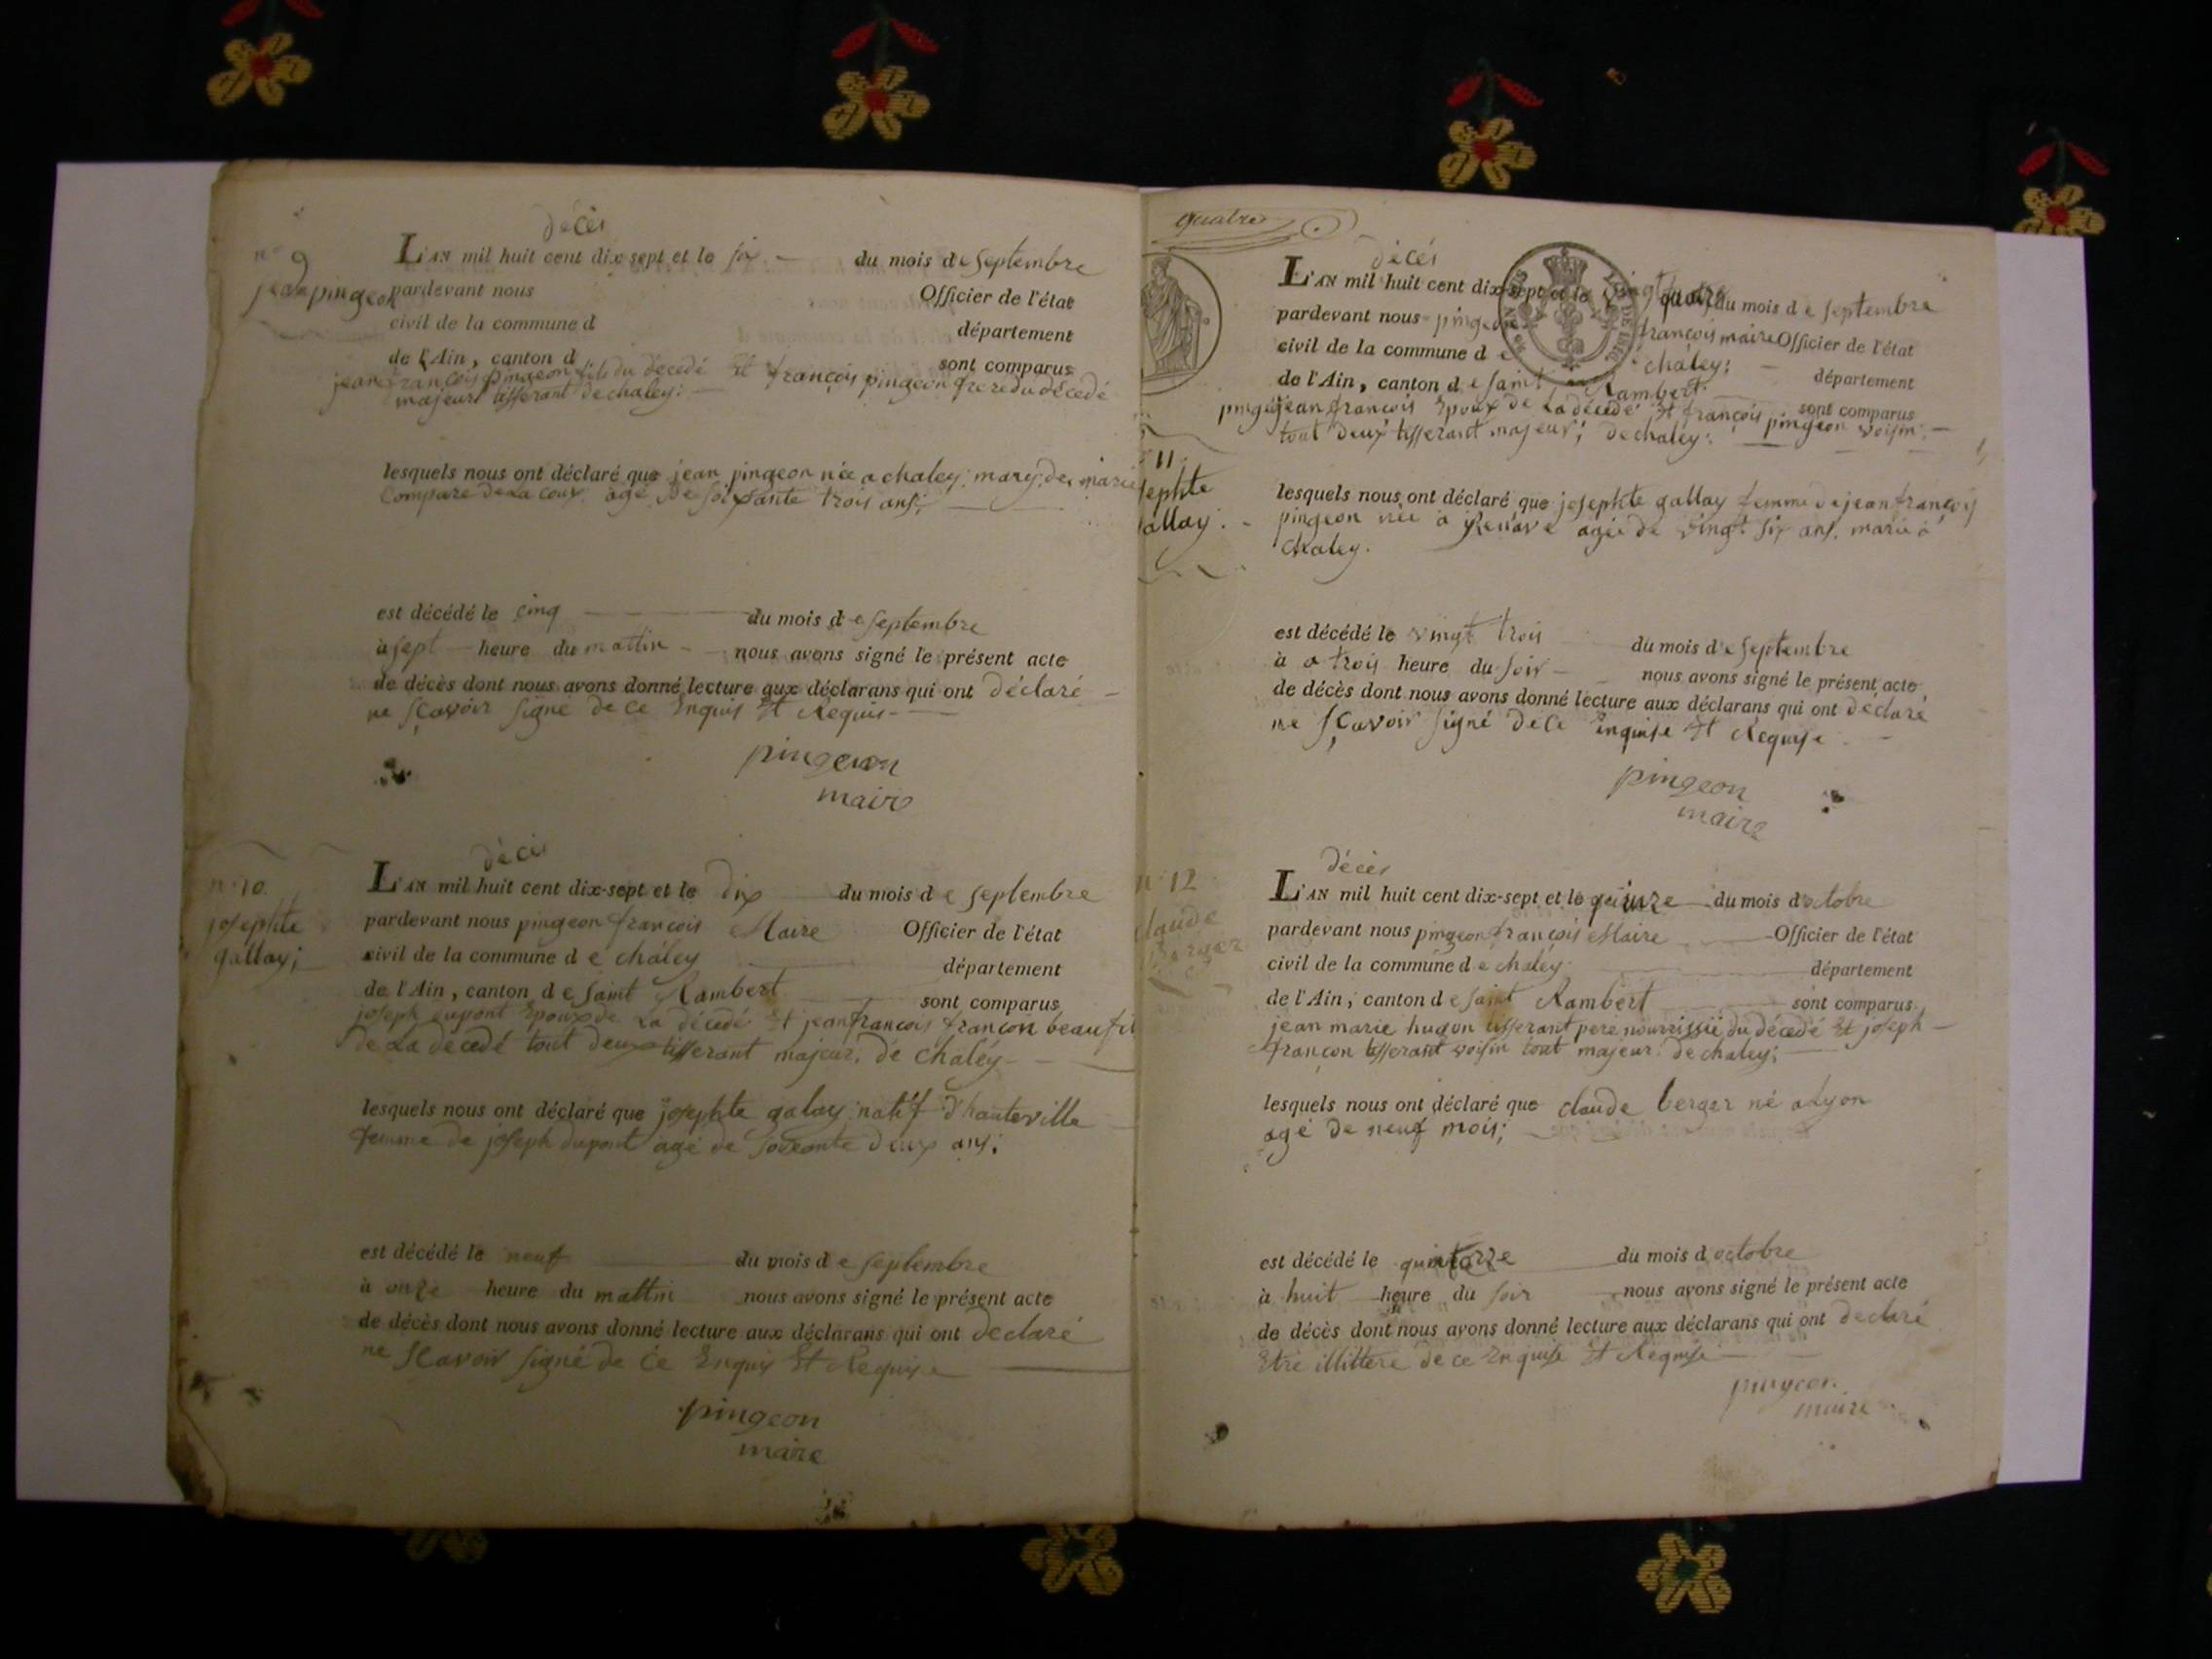 décès
n° 9
jean pingeon
L'AN mil huit cent dix-sept et le six du mois de septembre
pardevant nous Officier de l'état
civil de la commune d
département
de l'Ain, canton d sont comparus
jean françois pingeon fils du décedé Et françois pingeon frere du décedé
majeurs tisserant de chaley:
lesquels nous ont déclaré que jean pingeon née a chaley mary de marie
Compare de La coux agé de soixsante trois ans;
est décédé le cinq du mois de septembre
à sept heure du mattin nous avons signé le présent acte
de décès dont nous avons donné lecture aux déclarans qui ont déclaré
ne sçavoir signé de ce Enquis Et Requis
pingeon
maire
décès
n° 10
josephte
gallay;
L'AN mil huit cent dix-sept et le dix du mois de septembre
pardevant nous pingeon françois Maire Officier de l'état
civil de la commune de chaley
département
de l'Ain, canton de saint Rambert sont comparus
joseph dupont Epoux de La décedé Et jean francois françon beau fil
de La decedé tout deux tisserant majeur, de chaley
lesquels nous ont déclaré que josephte galay natif d'hauteville
femme de joseph dupont agé de deux ans;
est décédé le neuf du mois de septembre
à onze heure du mattin nous avons signé le présent acte
de décès dont nous avons donné lecture aux déclarans qui ont declaré
ne scavoir signé de ce Enquis Et Requise
pingeon
maire
quatre
décès
L'AN mil huit cent dix-sept et le vingt quatre du mois de septembre
pardevant nous pingeon françois maire Officier de l'état
civil de la commune de chaley;
département
de l'Ain, canton de saint Rambert sont comparus
jean françois Epoux de La décedé Et françois pingeon voisin
tout deux tisserant majeur; de chaley:
11
sephte
allay
lesquels nous ont déclaré que josephte gallay femme de jean françois
pingeon née a agée de vingt six ans, marié à
chaley.
est décédé le vingt trois du mois de septembre
à a trois heure du soir nous avons signé le présent acte
de décès dont nous avons donné lecture aux déclarans qui ont déclaré
ne sçavoir signé de ce enquise Et Requise
pingeon
maire
décès
n° 12
claude
berger
L'AN mil huit cent dix-sept et le quinze du mois d'octobre
pardevant nous pingeon françois Maire Officier de l'état
civil de la commune de chaley
département
de l'Ain, canton de saint Rambert sont comparus
jean marie hugon tisserant pere nourrissié du décedé Et joseph
françon tisserant voisin tout majeur de chaley;
lesquels nous ont déclaré que claude berger né a Lyon
agé de neuf mois;
est décédé le du mois d'octobre
à huit heure du soir nous avons signé le présent acte
de décès dont nous avons donné lecture aux déclarans qui ont declaré
Etre illittere de ce Enquise Et Requise
pingeon
maire